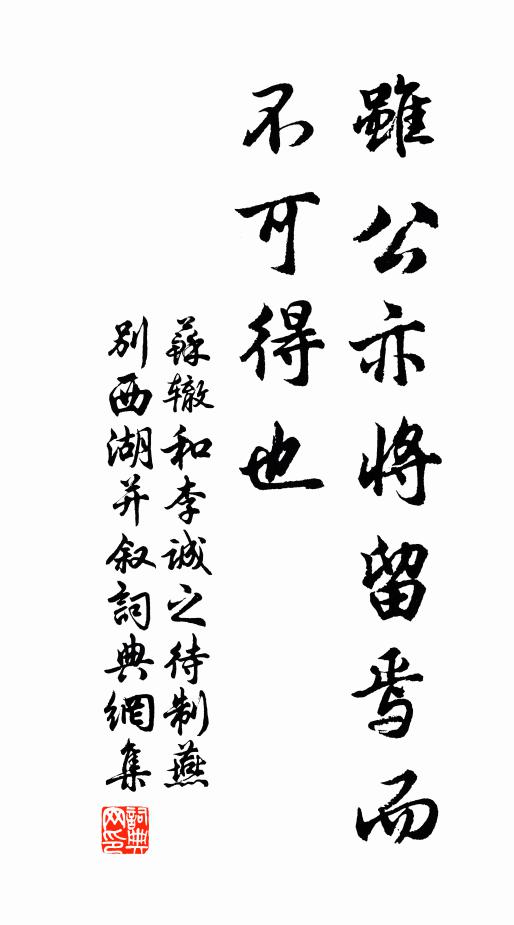 雖公亦將留焉而
不可得也
蘇辙和李誠之待制燕
别西湖并叙詞典網集
詞典网印